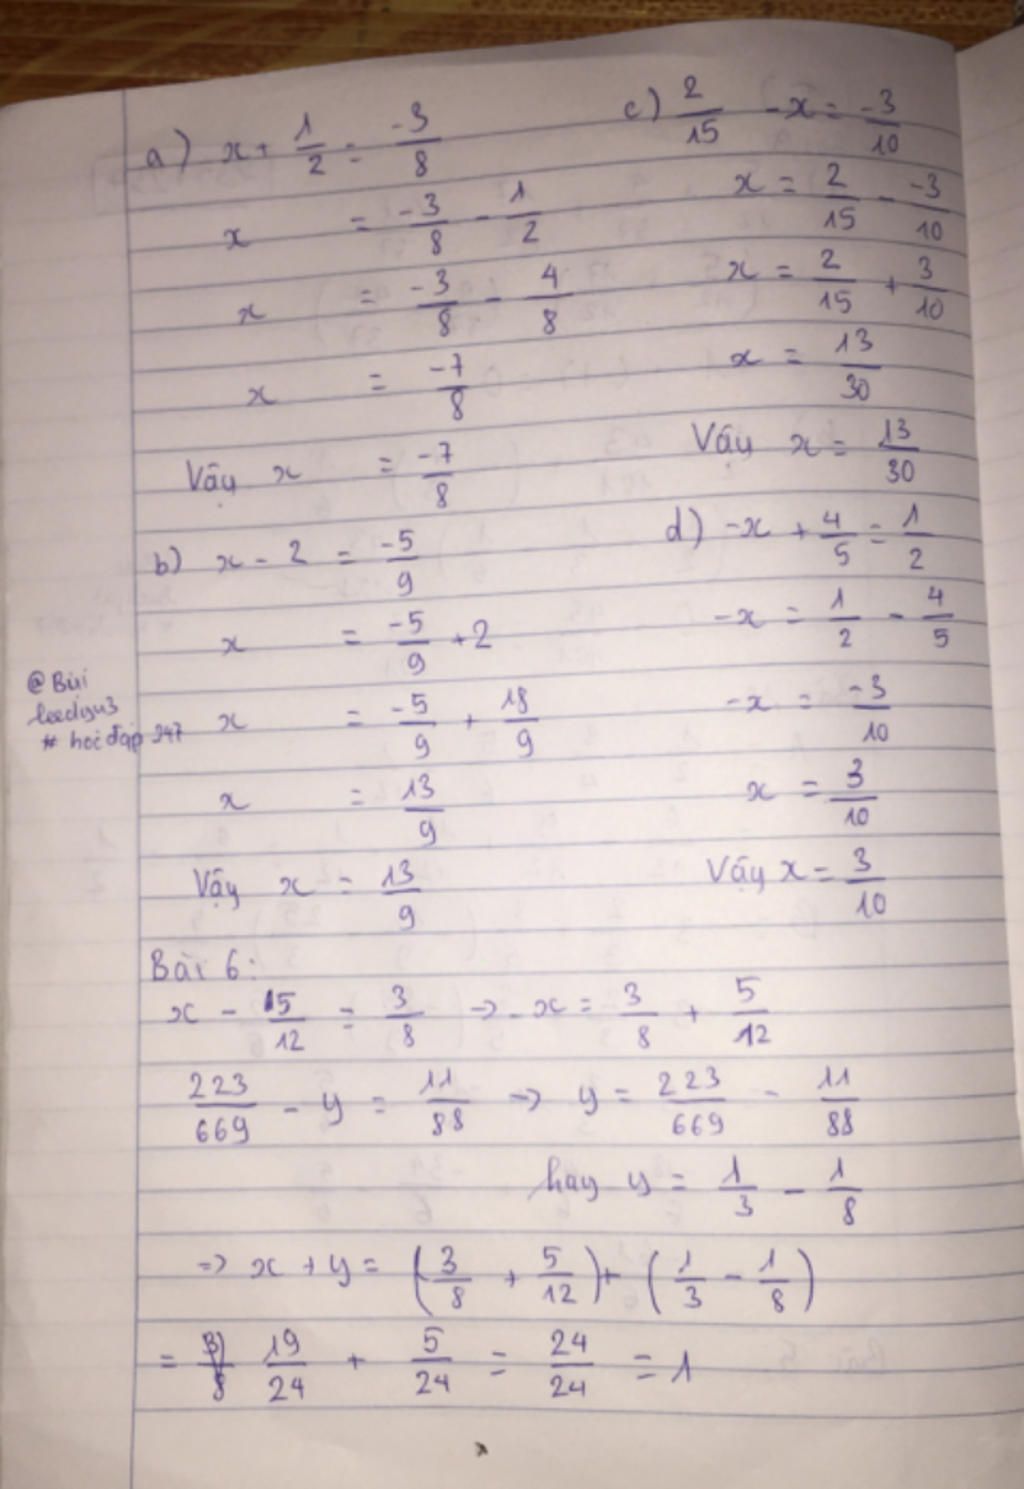 a) x + 1/2 = -3/8
x = -3/8 - 1/2
x = -3/8 - 4/8
x = -7/8
Vậy x = -7/8
b) x - 2 = -5/9
x = -5/9 + 2
x = -5/9 + 18/9
x = 13/9
Vậy x = 13/9
c) 2/15 - x = -3/10
x = 2/15 - -3/10
x = 2/15 + 3/10
x = 13/30
Vậy x = 13/30
d) -x + 4/5 = 1/2
-x = 1/2 - 4/5
-x = -3/10
x = 3/10
Vậy x = 3/10
@ Bùi
# hỏi đáp 247
Bài 6:
x - 5/12 = 3/8 -> x = 3/8 + 5/12
223/669 - y = 11/88 -> y = 223/669 - 11/88
hay y = 1/3 - 1/8
=> x + y = (3/8 + 5/12) + (1/3 - 1/8)
= 19/24 + 5/24 = 24/24 = 1